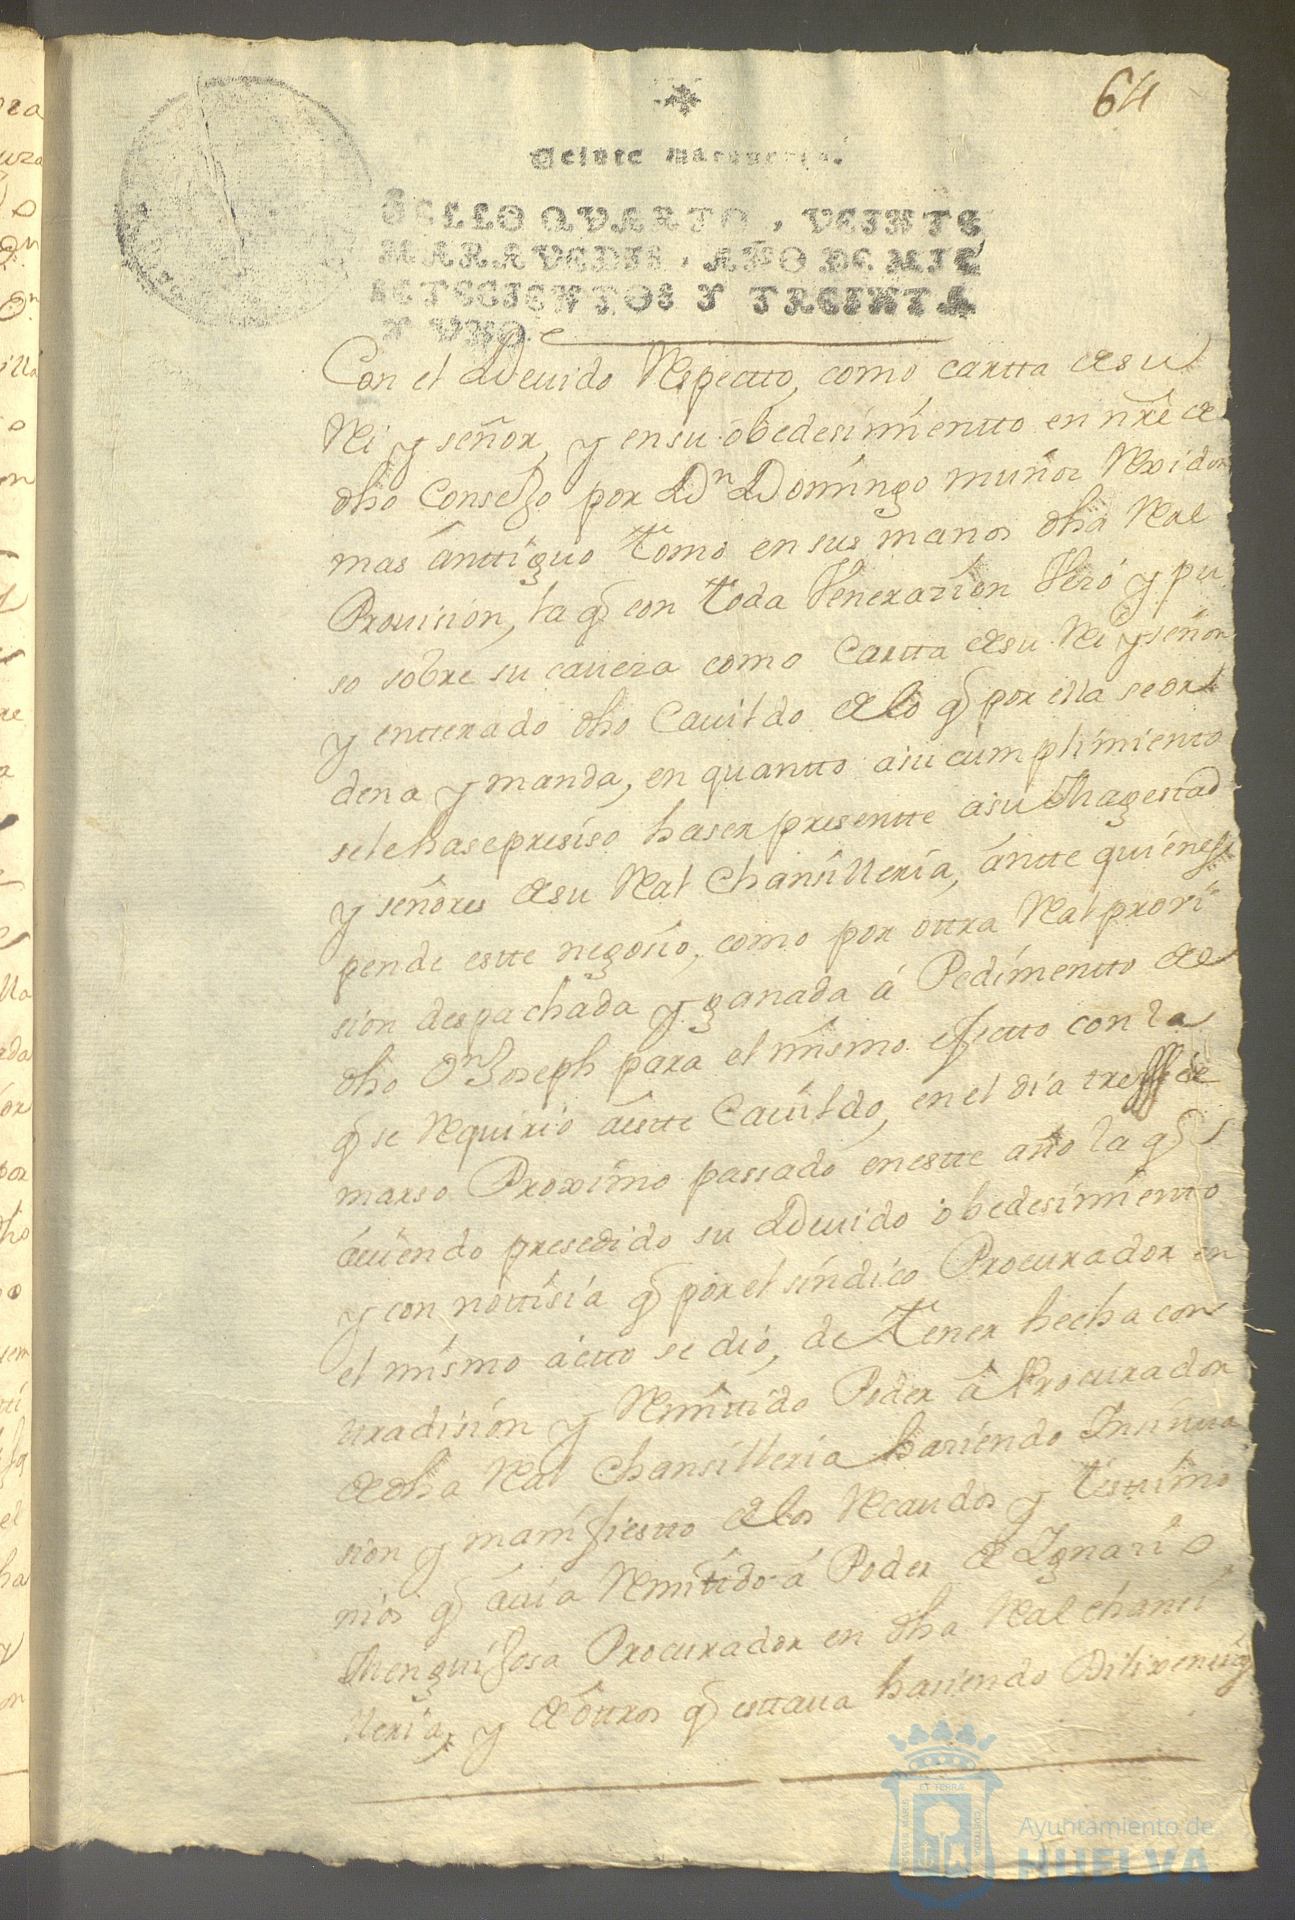 64
Veinte maravedis.
SELLO QVARTO, VEINTE
MARAVEDIS, AÑO DE MIL
SETECIENTOS Y TREINTA
Y UNO.
Con el Devido Respectto, como cartta de su
Rei y señor, y en su obedesimientto en nre de
dho Consejo por Dn Domingo muñoz Rexidor
mas anttiguo tomo en sus manos dha Real
Prouision, la q con toda Venerazion Veso y pu
so sobre su caueza como Cartta de su Rei y señor
y entterado dho Cauildo de lo q por ella se or
dena y manda, en quantto a su cumplimiento
se le hase presiso haser presentte a su Magestad
y señores de su Real Chansilleria, antte quienes
pende estte negosio, como por ottra Real provi
sion despachada y ganada á Pedimentto de
dho Dn Joseph para el mismo efectto con la
q se Requirio a estte Cauildo, en el dia tres de
marso Proximo passado en estte año la q
auiendo presedido su Deuido obedesimiento
y con nottisia q por el sindico Procurador en
el mismo actto se dio, de Tener hecha con
tradision y Remittido Poder á Procurador
de dha Real Chansilleria haziendo Insinua
sion y manifiesto de los Recaudos y testtimo
nios q auia Remittido á Poder de Ignazio
Menguijosa Procurador en dha Real chansi
lleria, y de ottros q esttaua haziendo Dilixensias
Ayuntamiento de
HUELVA